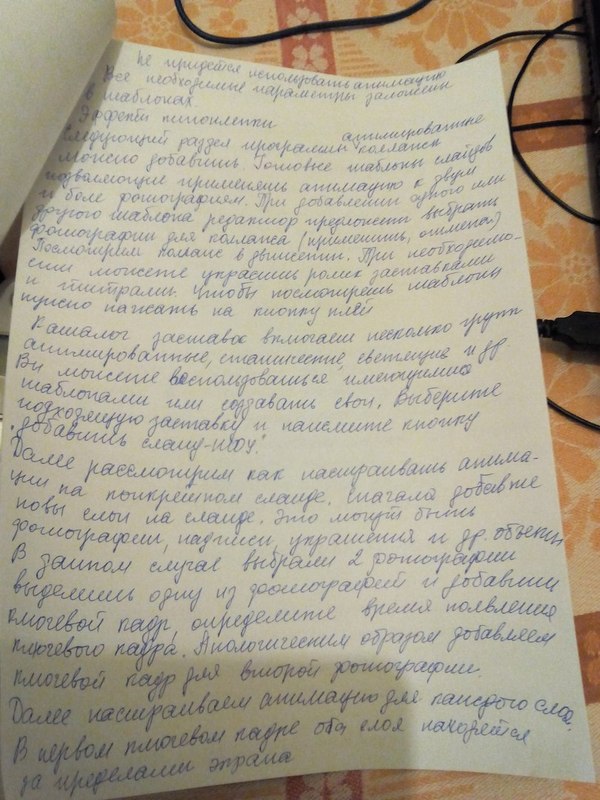 не придется использовать анимацию
Все необходимые параметры заложены
в шаблонах.
Эффекты кинопленки
Следующий раздел программы анимированные коллажи
можно добавить. Готовые шаблоны слайдов
позволяющие применить анимацию к двум
и боле фотографиям. При добавлении одного или
другого шаблона редактор предложит выбрать
фотографии для коллажа (применить, отмена)
Посмотрим коллаж в движении. При необходимо-
сти можете украсить ролик заставками
и титрами. Чтобы посмотреть шаблоны
нужно нажать на кнопку плей
Каталог заставок включает несколько групп
анимированные, статические, светящие и др.
Вы можете воспользоваться имеющимися
шаблонами или создавать свои. Выберите
подходящую заставку и нажмите кнопку
"добавить слайд-шоу".
Далее рассмотрим как настраивать анима-
ции на конкретном слайде. Сначала добавте
новы слои на слайде. Это могут быть
фотографии, надписи, украшения и др. объекты
В данном случае выбрали 2 фотографии
выделить одну из фотографий и добавить
ключевой кадр, определите время появление
ключевого кадра. Аналогическим образом добавляем
ключевой кадр для второй фотографии.
Далее настраиваем анимацию для каждого слоя.
В первом ключевом кадре оба слоя находятся
за пределами экрана